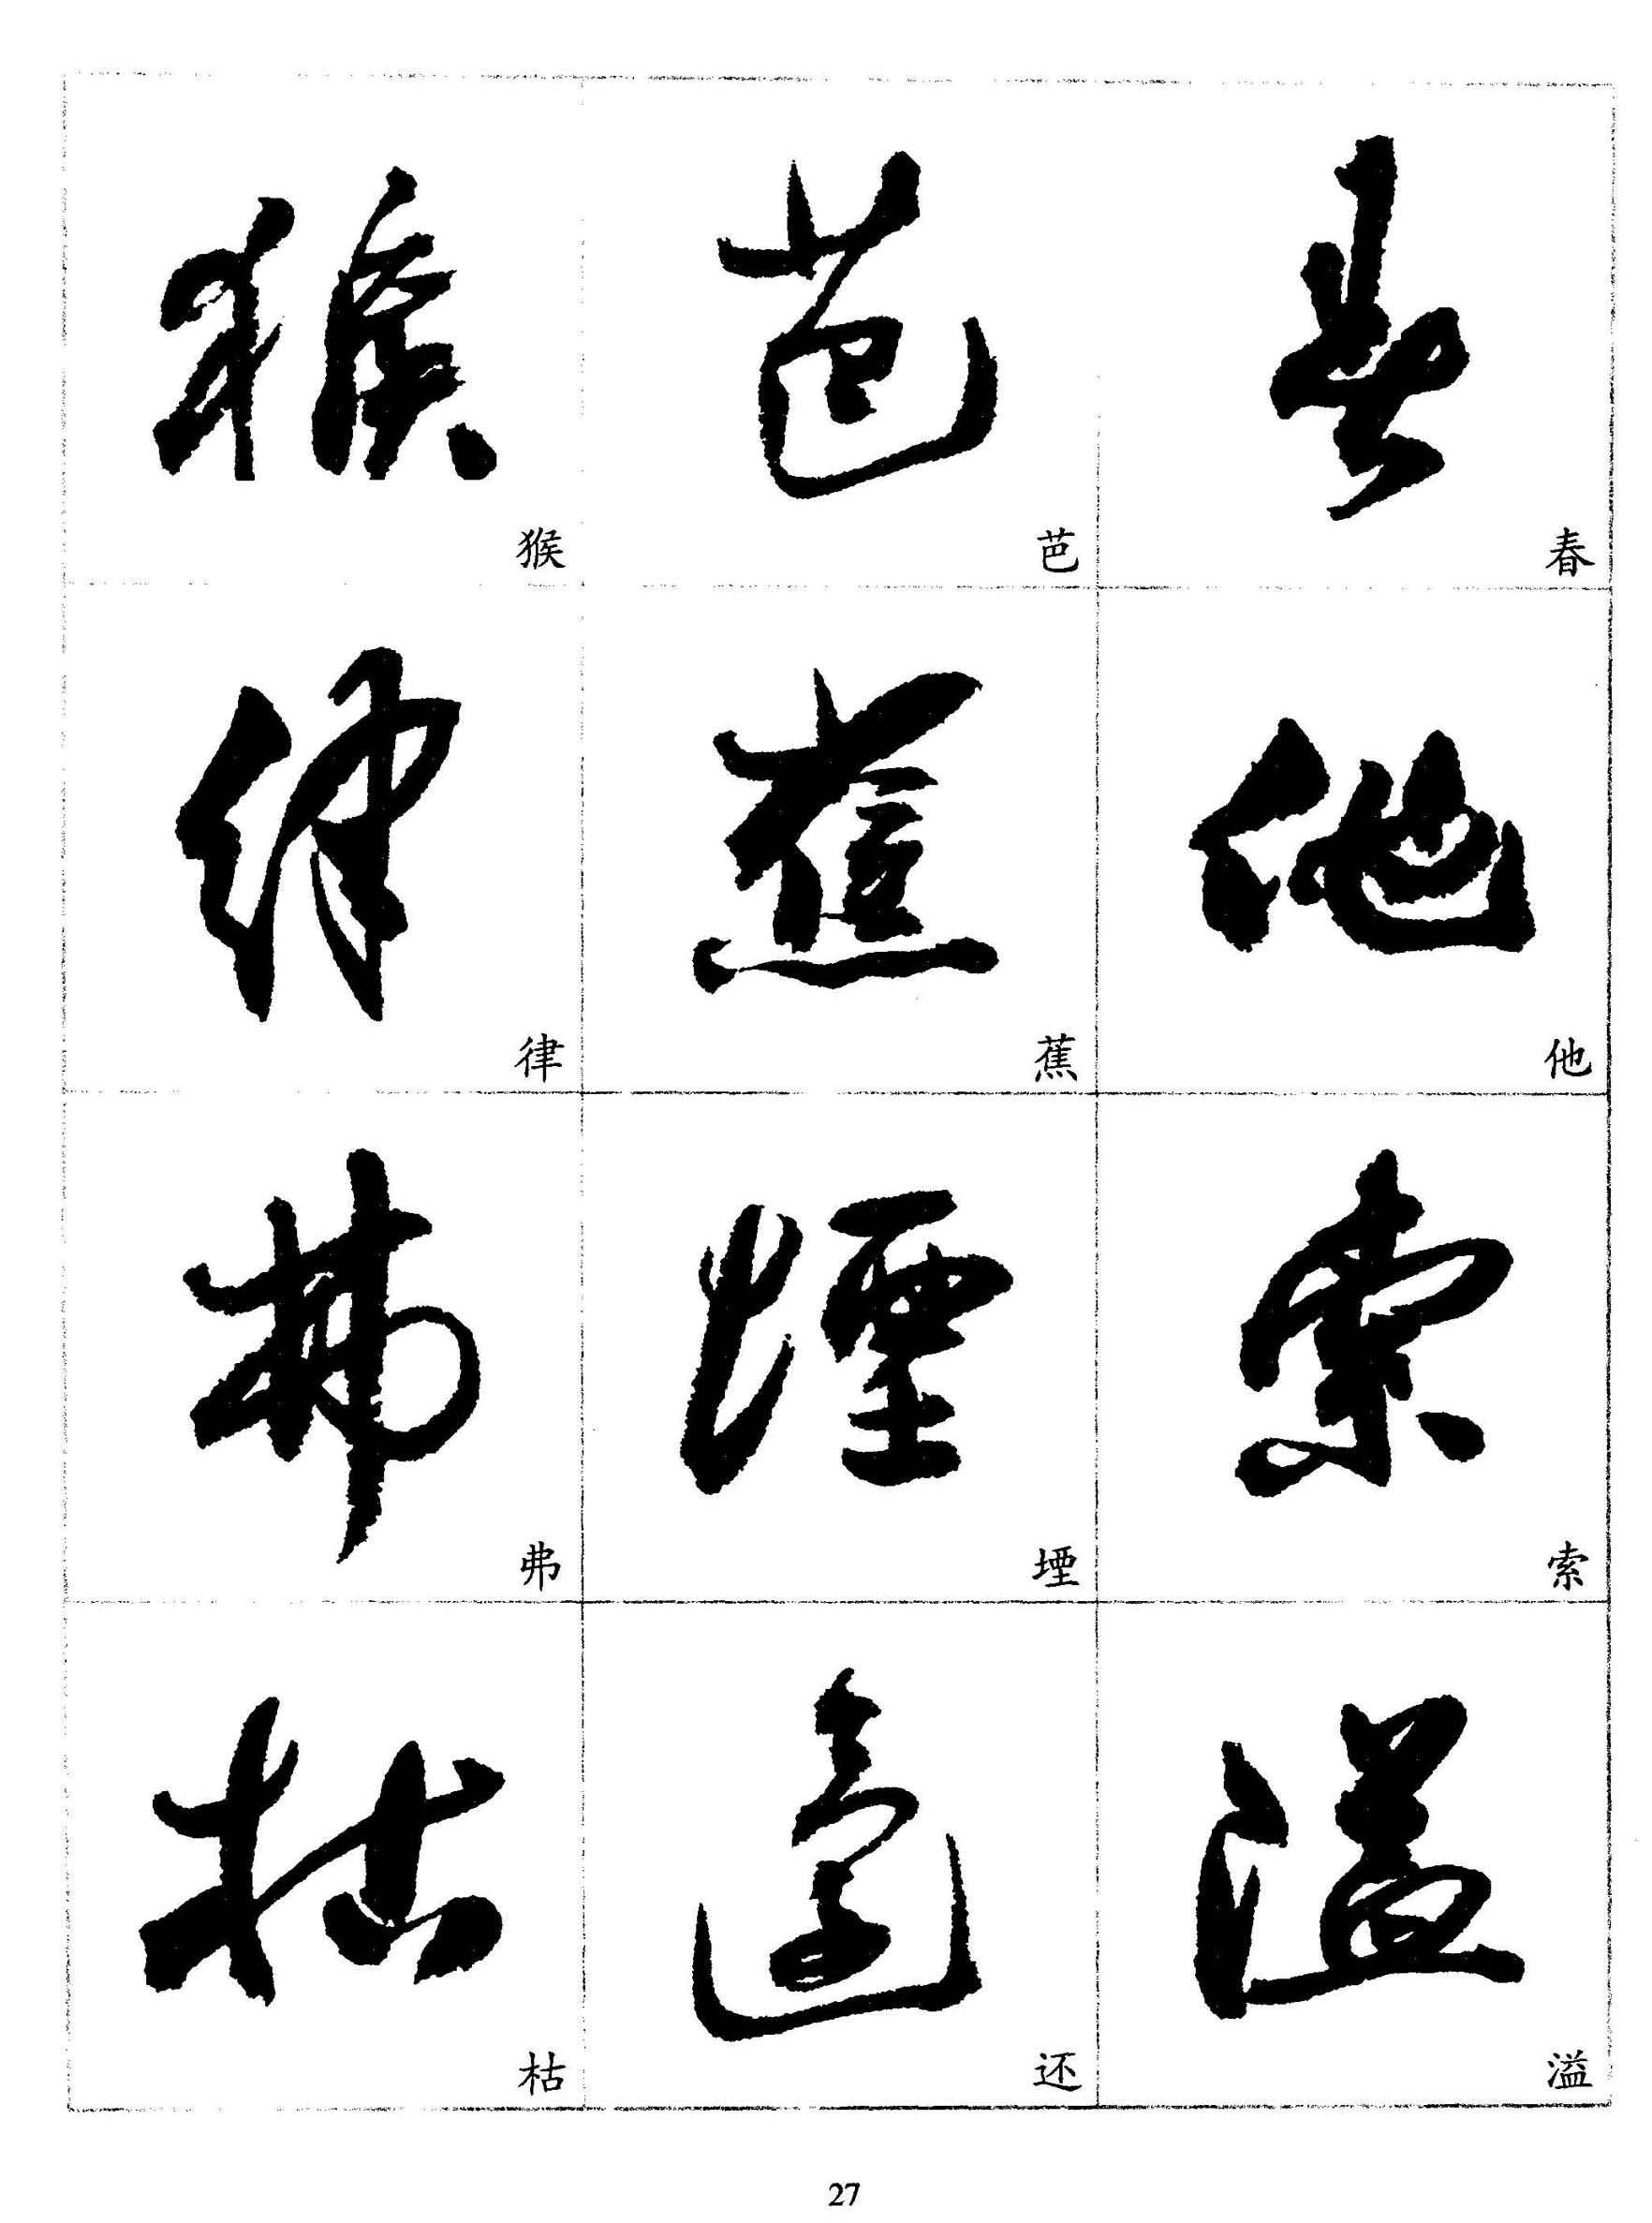 春
他
索
溢
芭
蕉
堙
还
猴
律
弗
枯
27